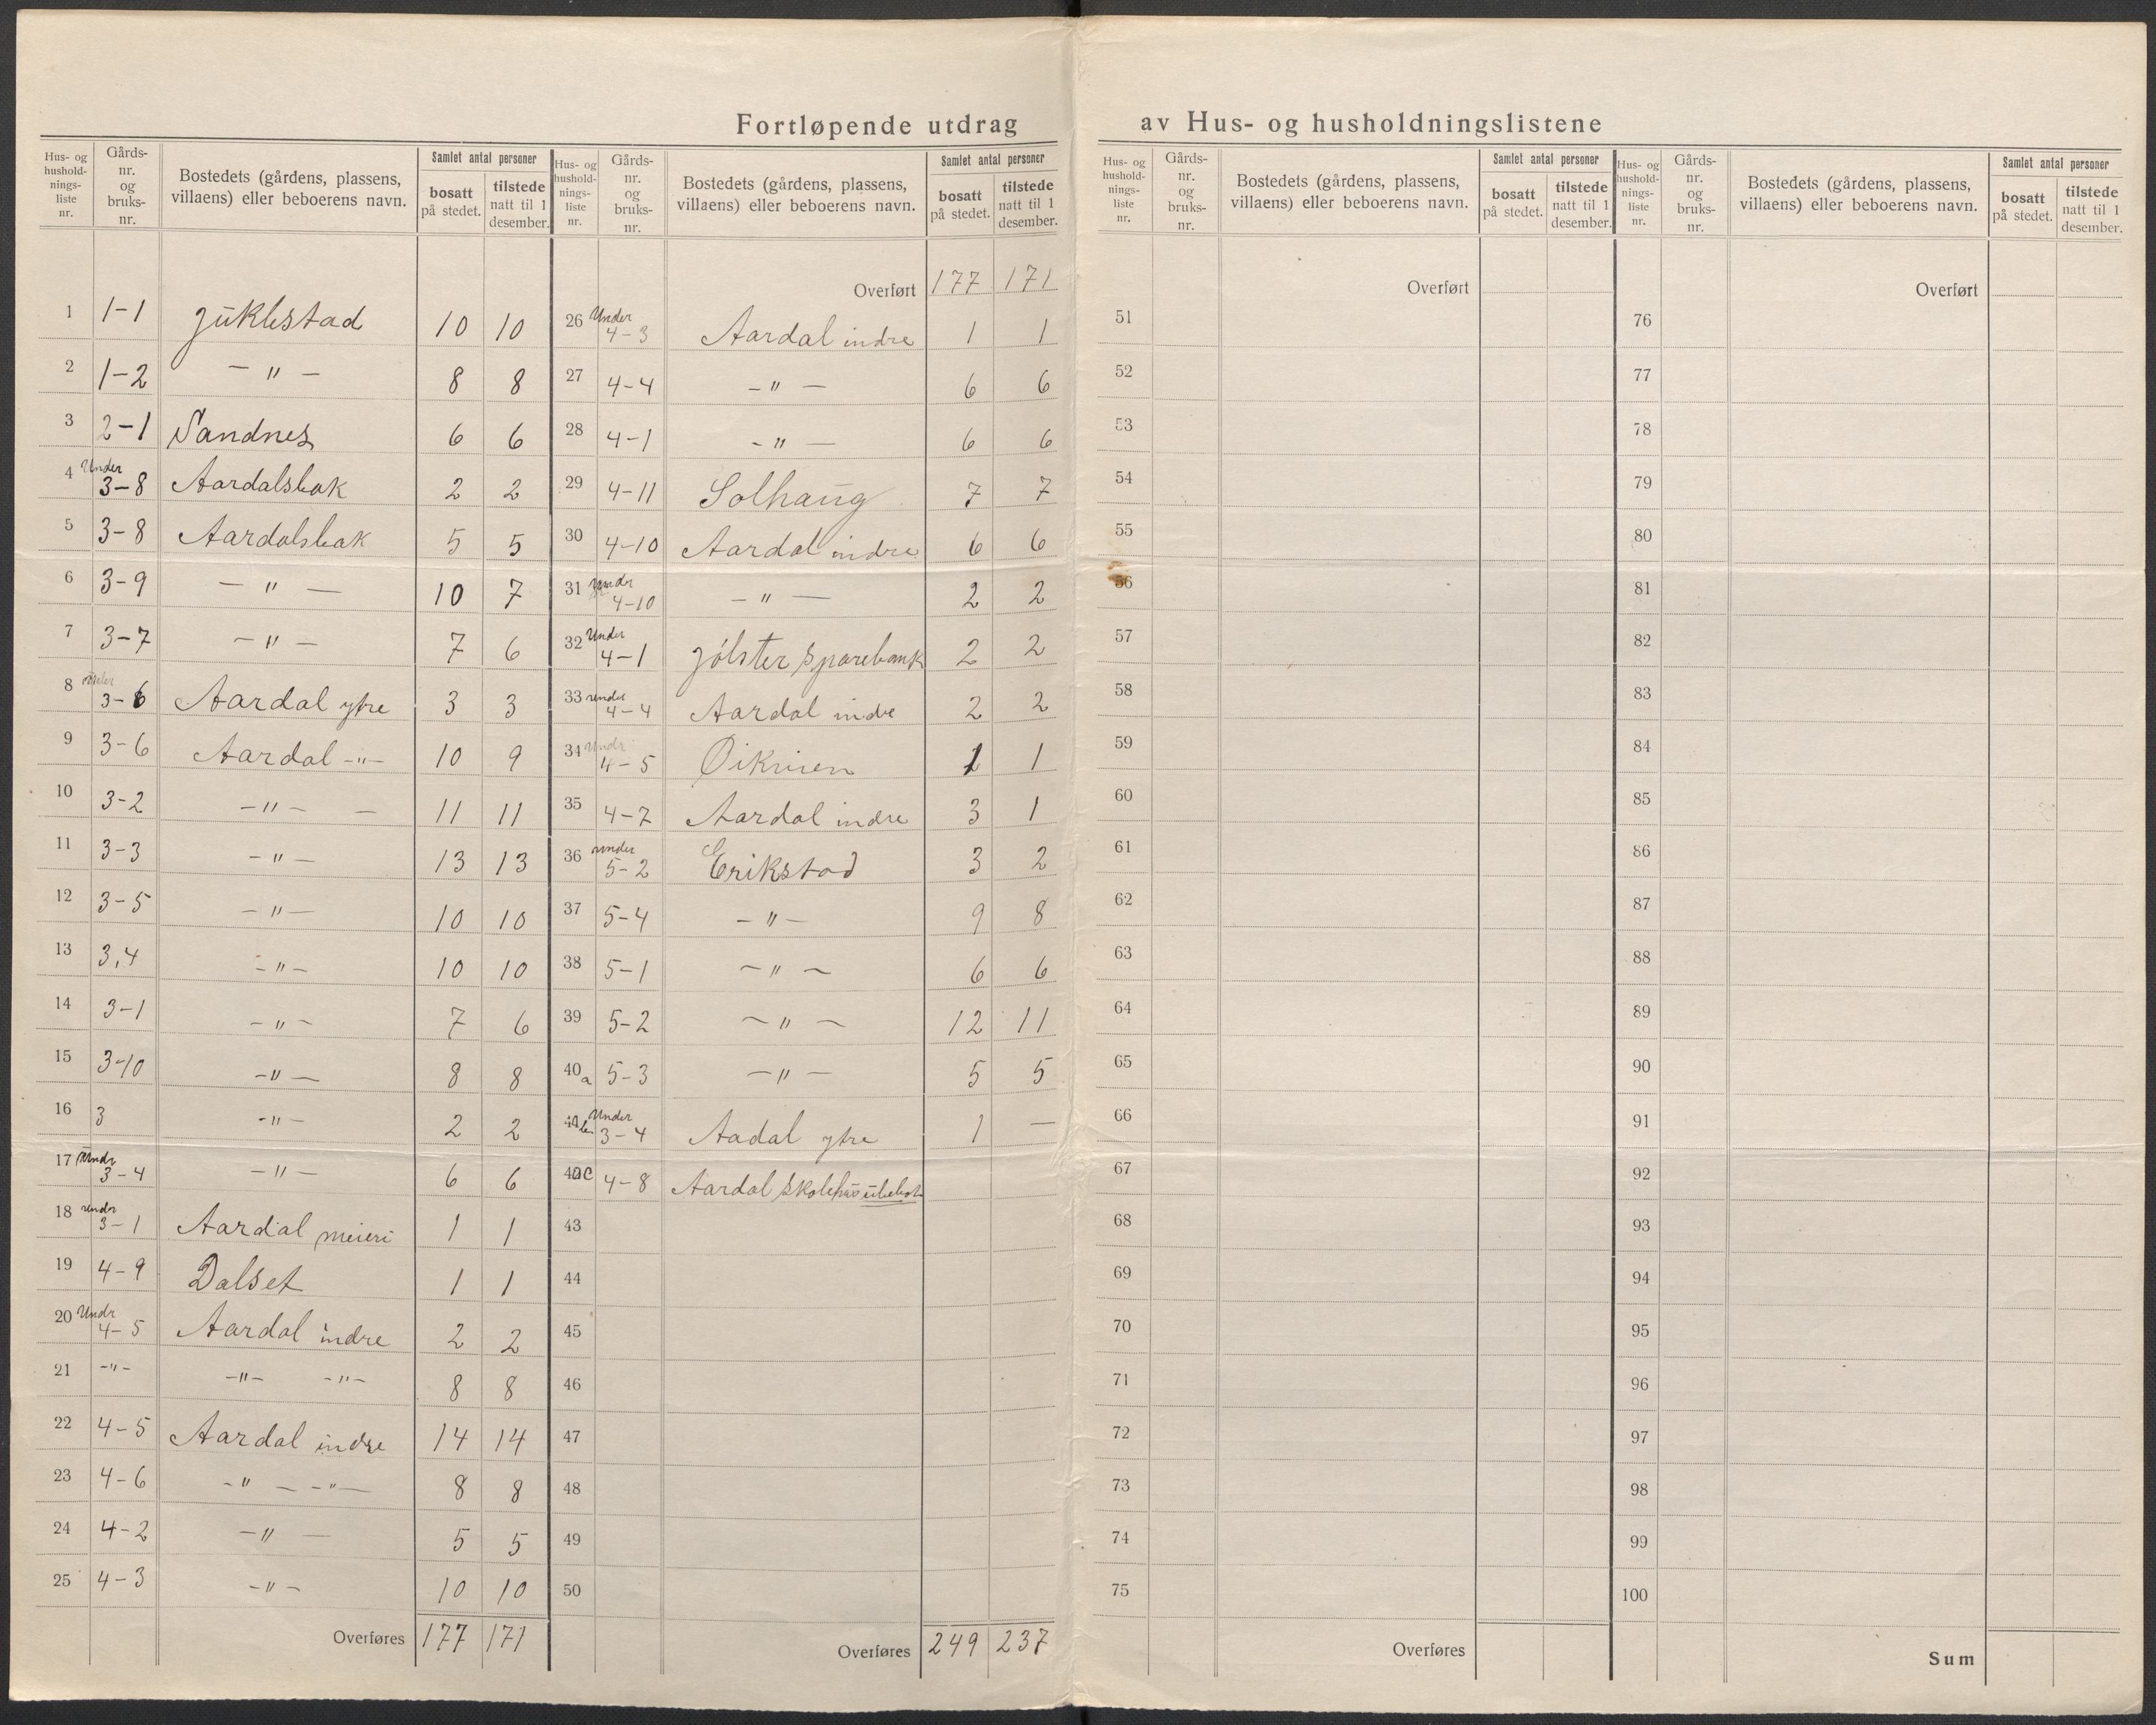 Fortløpende utdrag av Hus- og husholdningslistene
Hus- og hushold-nings-liste nr. | Gårds-nr. og bruks-nr. | Bostedets (gårdens, plassens, villaens) eller beboerens navn. | Samlet antal personer | bosatt på stedet. | tilstede natt til 1 desember.
1 1-1 Juklestad 10 10
2 1-2 — " — 8 8
3 2-1 Sandnes 6 6
4 Under 3-8 Aardalsbak 2 2
5 3-8 Aardalsbak 5 5
6 3-9 — " — 10 7
7 3-7 — " — 7 6
8 under 3-6 Aardal ytre 3 3
9 3-6 Aardal -"- 10 9
10 3-2 — " — — 11 11
11 3-3 — " — 13 13
12 3-5 — " — 10 10
13 3,4 — " — 10 10
14 3-1 — " — 7 6
15 3-10 — " — 8 8
16 3 — " — 2 2
17 Undr 3-4 — " — 6 6
18 undr 3-1 Aardal meieri 1 1
19 4-9 Dalset 1 1
20 Undr 4-5 Aardal indre 2 2
21 -"- -"- -"- 8 8
22 4-5 Aardal indre 14 14
23 4-6 -" — -"— 8 8
24 4-2 — " — 5 5
25 4-3 — " — 10 10
Overføres 177 171
Hus- og hushold-nings-liste nr. | Gårds-nr. og bruks-nr. | Bostedets (gårdens, plassens, villaens) eller beboerens navn. | Samlet antal personer | bosatt på stedet. | tilstede natt til 1 desember.
Overført 177 171
26 Under 4-3 Aardal indre 1 1
27 4-4 — " — 6 6
28 4-1 — " — 6 6
29 4-11 Solhaug 7 7
30 4-10 Aardal indre 6 6
31 under 4-10 — " — 2 2
32 Under 4-1 Jölster Sparebank 2 2
33 under 4-4 Aardal indre 2 2
34 Undr 4-5 1 1
35 4-7 Aardal indre 3 1
36 under 5-2 Erikstad 3 2
37 5-4 — " — 9 8
38 5-1 — " — 6 6
39 5-2 — " — 12 11
40a 5-3 — " — 5 5
Under 3-4 Aadal ytre 1 —
40c 4-8 Aardal skolehus ubebot
43
44
45
46
47
48
49
50
Overføres 249 237
Hus- og hushold-nings-liste nr. | Gårds-nr. og bruks-nr. | Bostedets (gårdens, plassens, villaens) eller beboerens navn. | Samlet antal personer | bosatt på stedet. | tilstede natt til 1 desember.
Overført
51
52
53
54
55
56
57
58
59
60
61
62
63
64
65
66
67
68
69
70
71
72
73
74
75
Overføres
Hus- og hushold-nings-liste nr. | Gårds-nr. og bruks-nr. | Bostedets (gårdens, plassens, villaens) eller beboerens navn. | Samlet antal personer | bosatt på stedet. | tilstede natt til 1 desember.
Overført
76
77
78
79
80
81
82
83
84
85
86
87
88
89
90
91
92
93
94
95
96
97
98
99
100
Sum